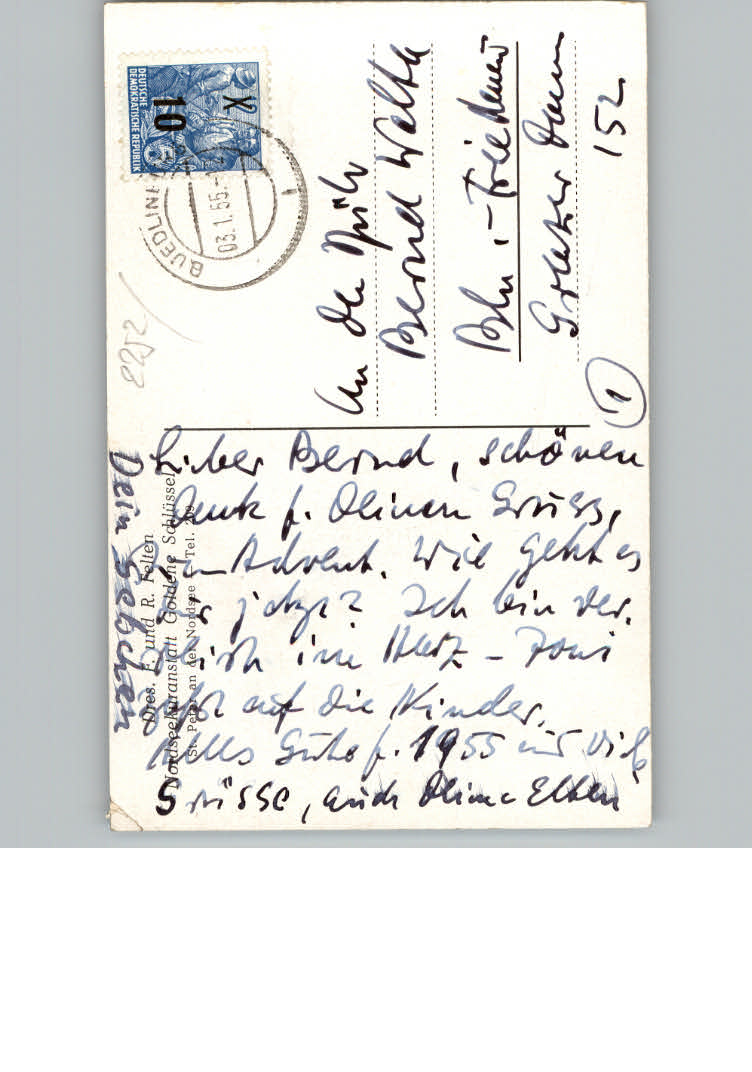 DEUTSCHE
DEMOKRATISCHE REPUBLIK
10
X
03.1.55.-
8252
An den
Bernd
Bln.-Friedenau
Grazer Damm
152
1
Lieber Bernd, schönen
Dank f. Deinen Gruss,
im Advent. Wie geht es
Dir jetzt? Ich bin ver.
im Harz - Toni
passt auf die Kinder.
Alles Gute f. 1955 und viele
Grüsse, auch Deinen Eltern
Dein
Dres. F. und R. Felten
Nordseekuranstalt Goldene Schlüssel
St. Peter an der Nordsee - Tel.